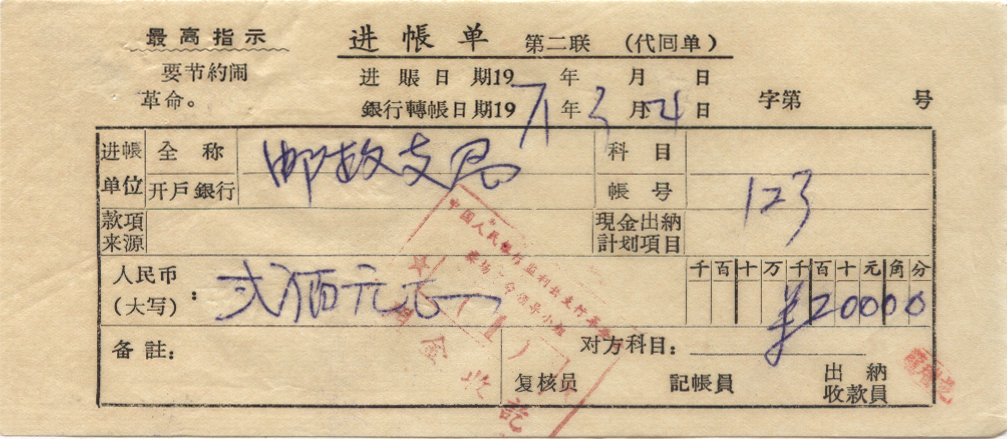 最高指示
要节約闹
革命。
进帳单 第二联 (代回单)
进賬日期19 年 月 日
銀行轉帳日期1971年3月4日
字第 号
进帳单位 全称 邮政支局 科目
开戶銀行 帳号 123
款項来源 現金出納計划項目
人民币(大写): 弍佰元正
千百十万千百十元角分
¥20000
备註:
对方科目:
复核员 記帳員 出納收款員
中国人民银行监利县支行革命
领导小组
(1)
现金收訖